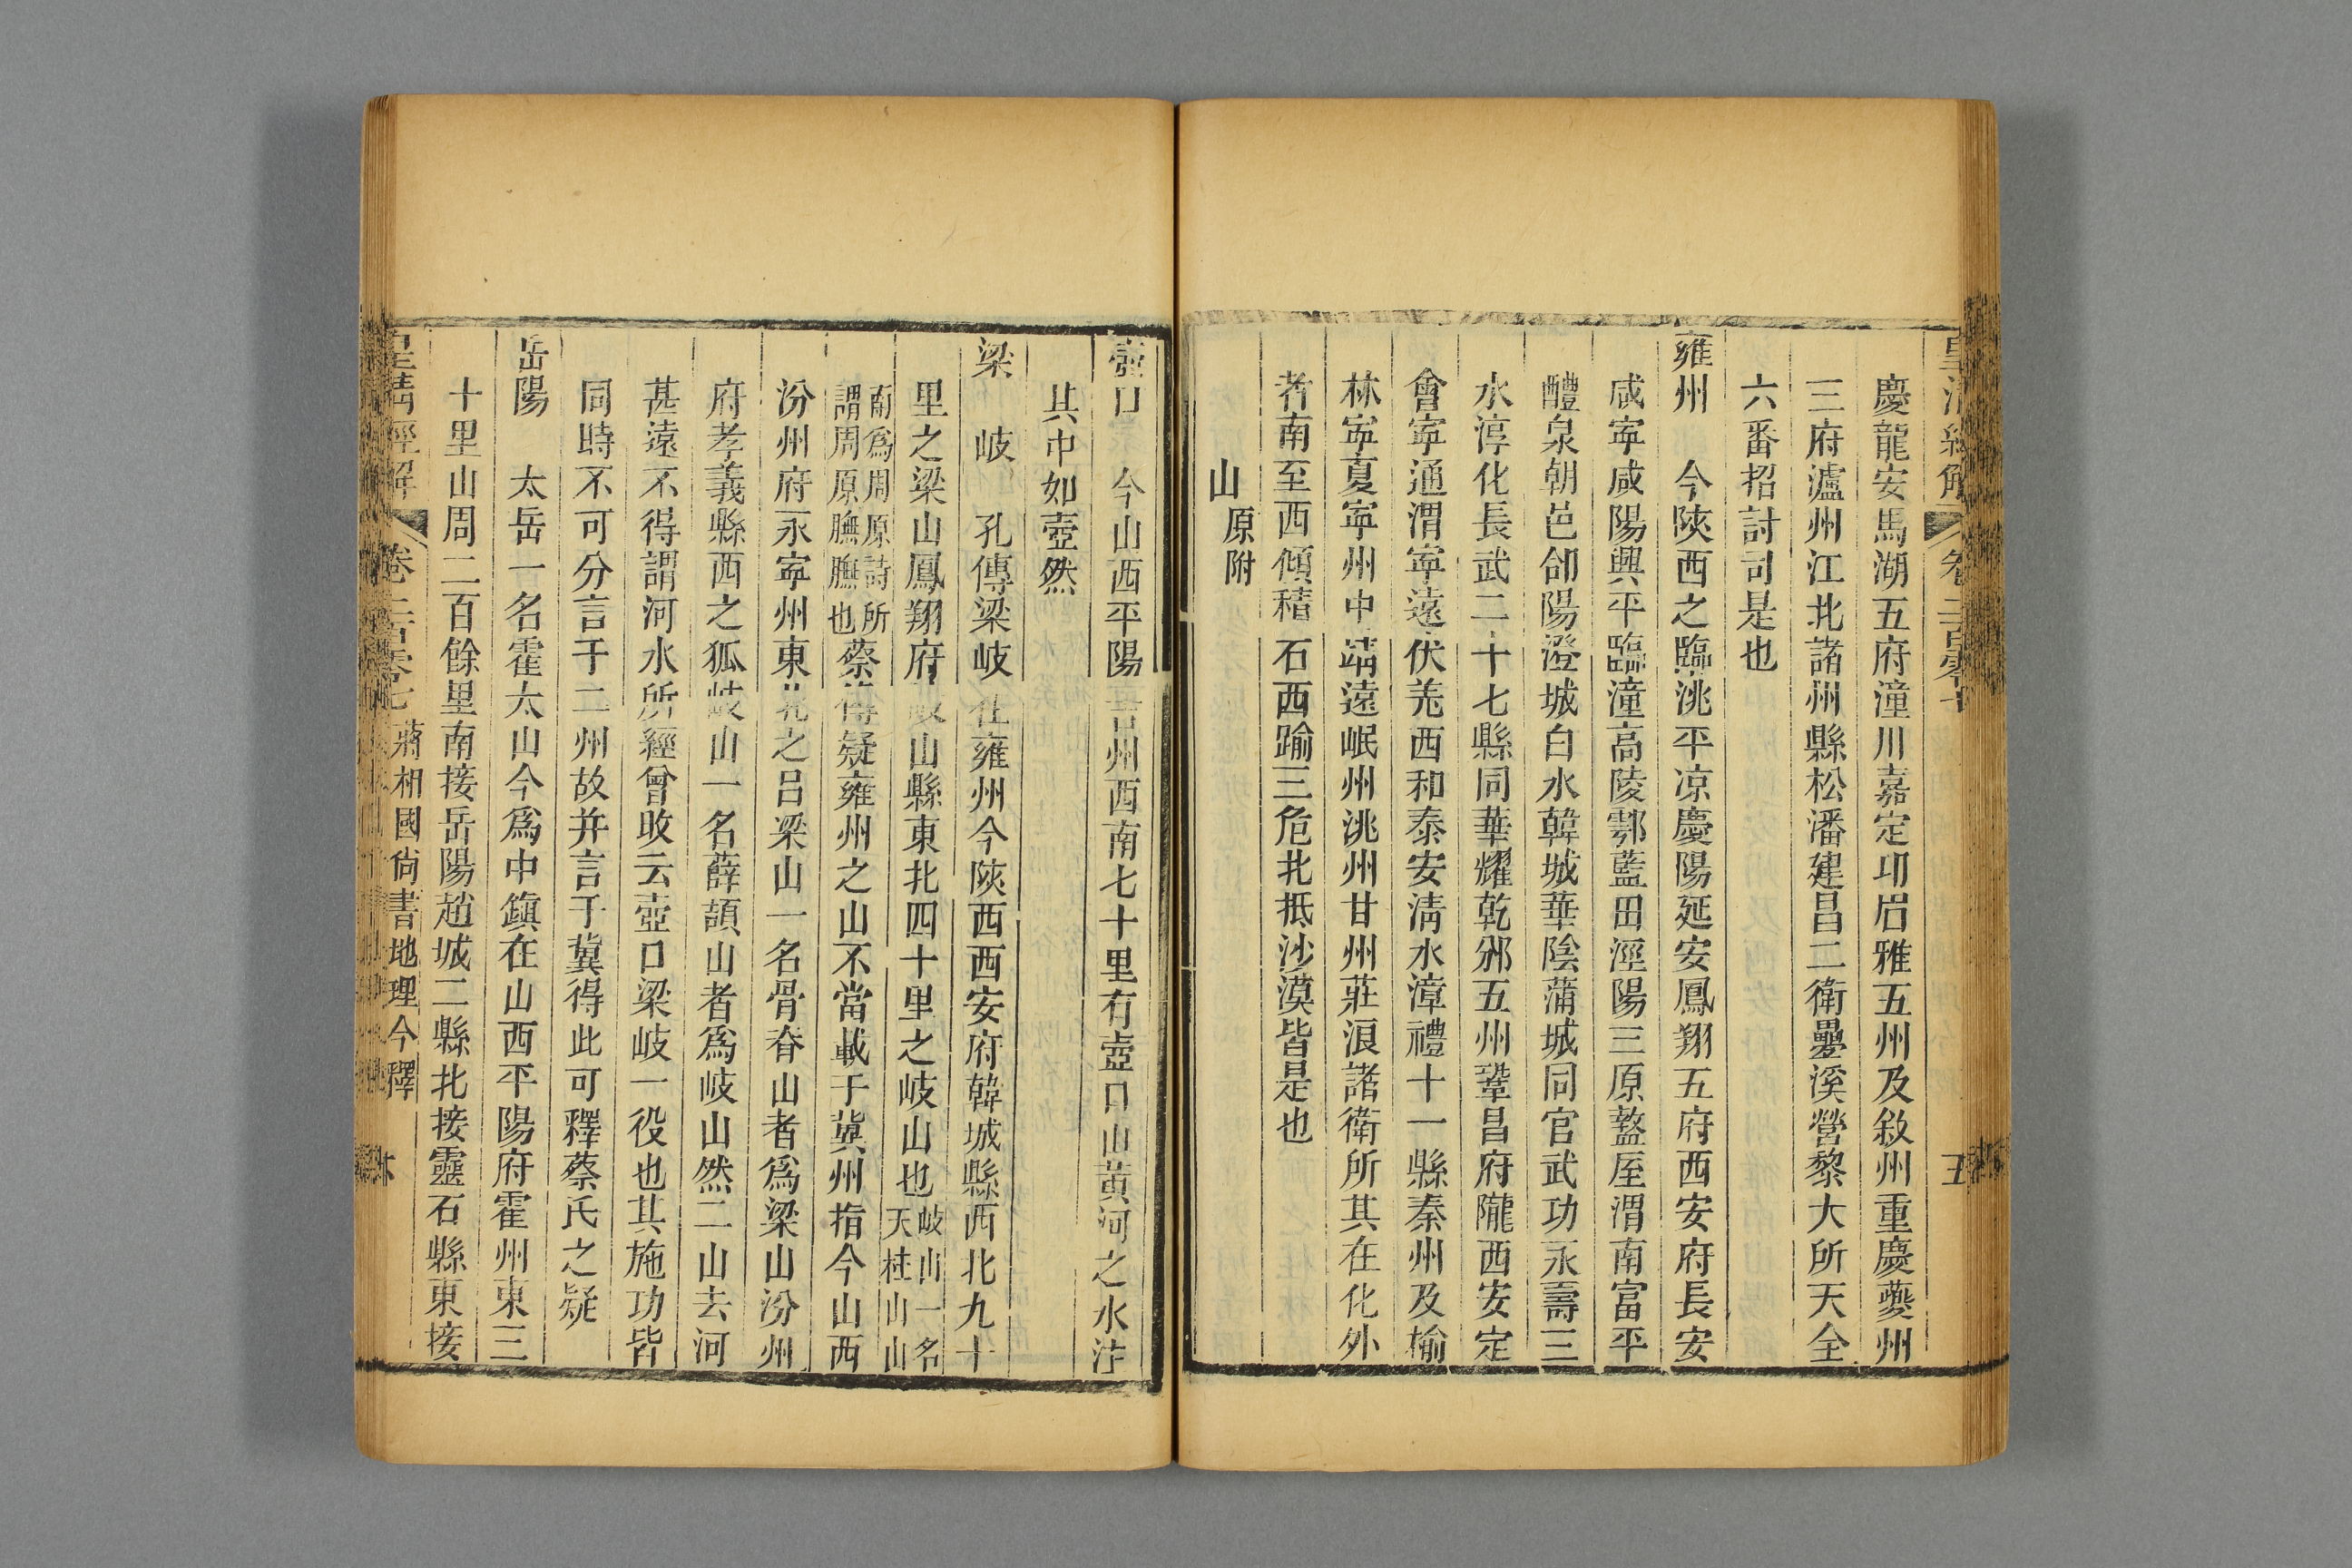 皇清經解 卷二百零七 五
慶龍安馬湖五府潼川嘉定邛眉雅五州及敘州重慶夔州
三府瀘州江北諸州縣松潘建昌二衛疊溪營黎大所天全
六番招討司是也
雍州 今陝西之臨洮平凉慶陽延安鳳翔五府西安府長安
咸寧咸陽興平臨潼高陵鄠藍田涇陽三原盩厔渭南富平
醴泉朝邑郃陽澄城白水韓城華陰蒲城同官武功永壽三
水淳化長武二十七縣同華耀乾邠五州鞏昌府隴西安定
會寧通渭寧遠伏羌西和秦安清水漳禮十一縣秦州及榆
林寧夏寧州中靖遠岷州洮州甘州莊浪諸衛所其在化外
者南至西傾積石西踰三危北抵沙漠皆是也
山原附
壺口 今山西平陽吉州西南七十里有壺口山黃河之水注
其中如壺然
梁 岐 孔傳梁岐在雍州今陝西西安府韓城縣西北九十
里之梁山鳳翔府岐山縣東北四十里之岐山也岐山一名天柱山山
南爲周原詩所謂周原膴膴也蔡傳疑雍州之山不當載于冀州指今山西
汾州府永寧州東北之呂梁山一名骨脊山者爲梁山汾州
府孝義縣西之狐岐山一名薛頡山者爲岐山然二山去河
甚遠不得謂河水所經曾旼云壺口梁岐一役也其施功皆
同時不可分言于二州故并言于冀得此可釋蔡氏之疑
岳陽 太岳一名霍太山今爲中鎭在山西平陽府霍州東三
十里山周二百餘里南接岳陽趙城二縣北接靈石縣東接
皇清經解 卷二百零七 蔣相國尙書地理今釋